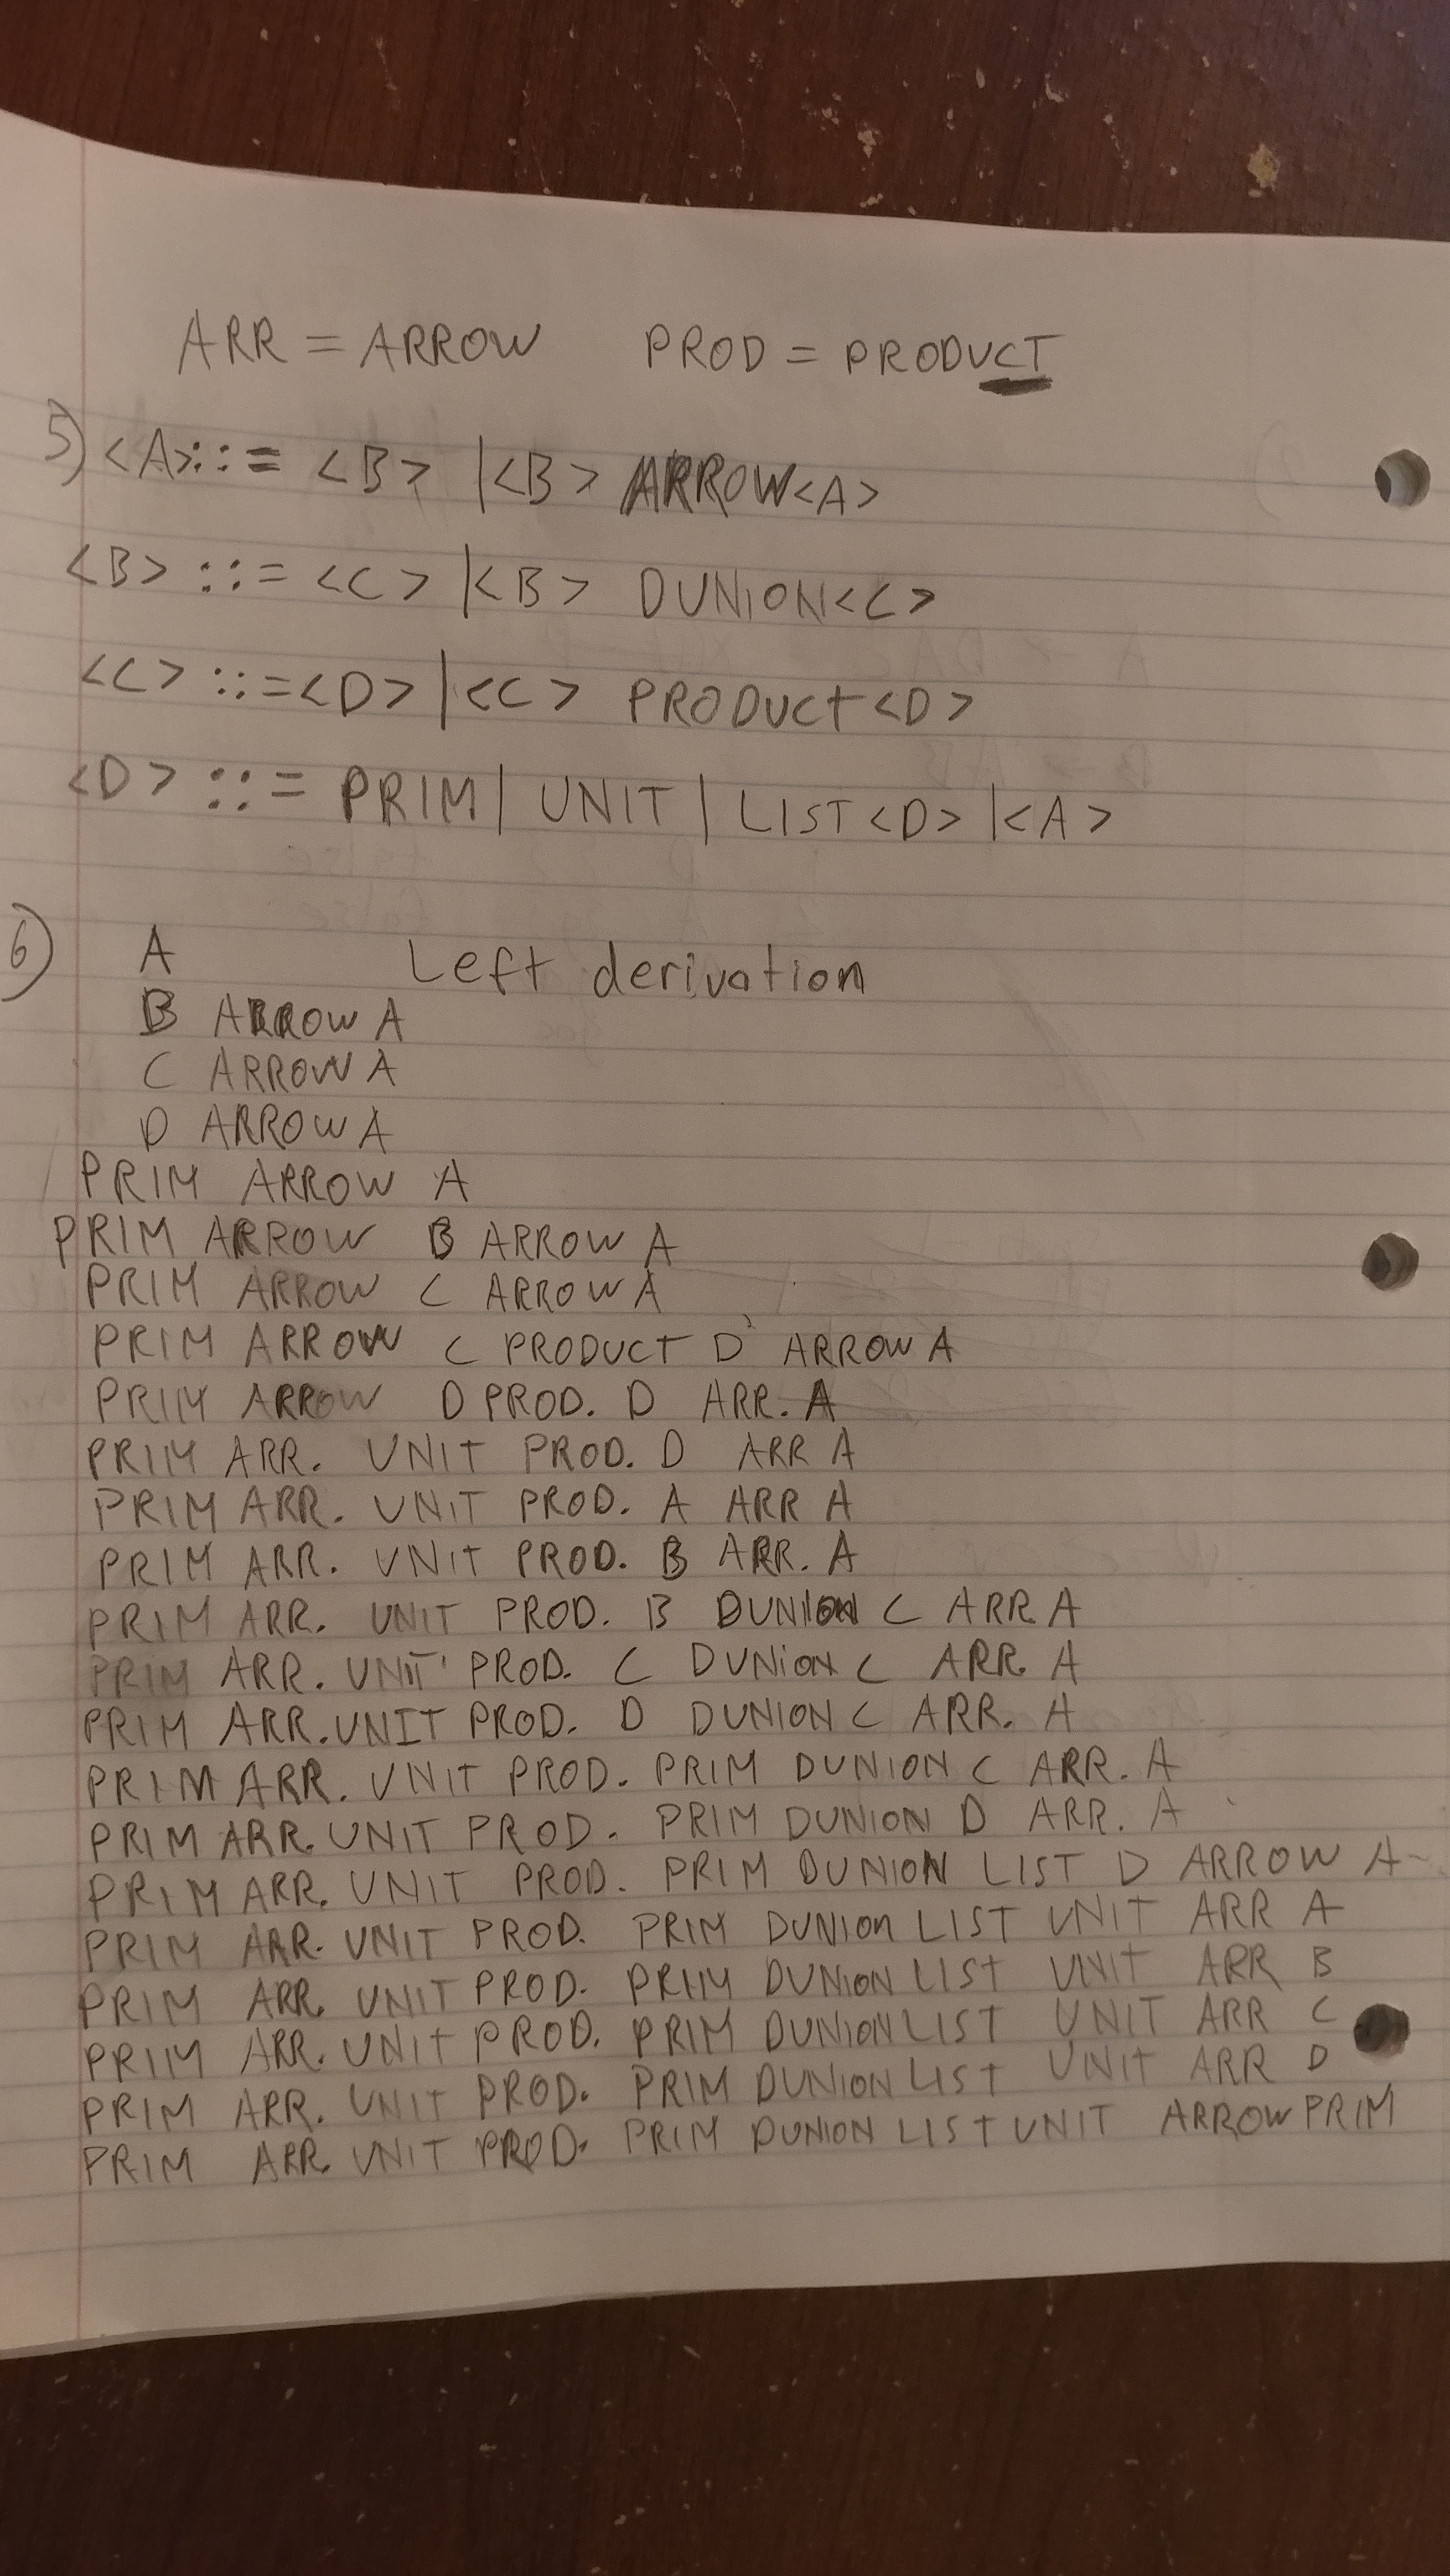 ARR = ARROW PROD = PRODUCT
5) <A>::= <B> |<B> ARROW<A>
<B> ::= <C> |<B> DUNION<C>
<C> ::=<D> |<C> PRODUCT<D>
<D> ::= PRIM| UNIT | LIST<D> |<A>
6) A Left derivation
B ARROW A
C ARROW A
D ARROW A
PRIM ARROW A
PRIM ARROW B ARROW A
PRIM ARROW C ARROW A
PRIM ARROW C PRODUCT D ARROW A
PRIM ARROW D PROD. D ARR. A
PRIM ARR. UNIT PROD. D ARR A
PRIM ARR. UNIT PROD. A ARR A
PRIM ARR. UNIT PROD. B ARR. A
PRIM ARR. UNIT PROD. B DUNION C ARR A
PRIM ARR. UNIT PROD. C DUNION C ARR. A
PRIM ARR. UNIT PROD. D DUNION C ARR. A
PRIM ARR. UNIT PROD. PRIM DUNION C ARR. A
PRIM ARR. UNIT PROD. PRIM DUNION D ARR. A
PRIM ARR. UNIT PROD. PRIM DUNION LIST D ARROW A
PRIM ARR. UNIT PROD. PRIM DUNION LIST UNIT ARR A
PRIM ARR. UNIT PROD. PRIM DUNION LIST UNIT ARR B
PRIM ARR. UNIT PROD. PRIM DUNION LIST UNIT ARR C
PRIM ARR. UNIT PROD. PRIM DUNION LIST UNIT ARR D
PRIM ARR. UNIT PROD. PRIM DUNION LIST UNIT ARROW PRIM